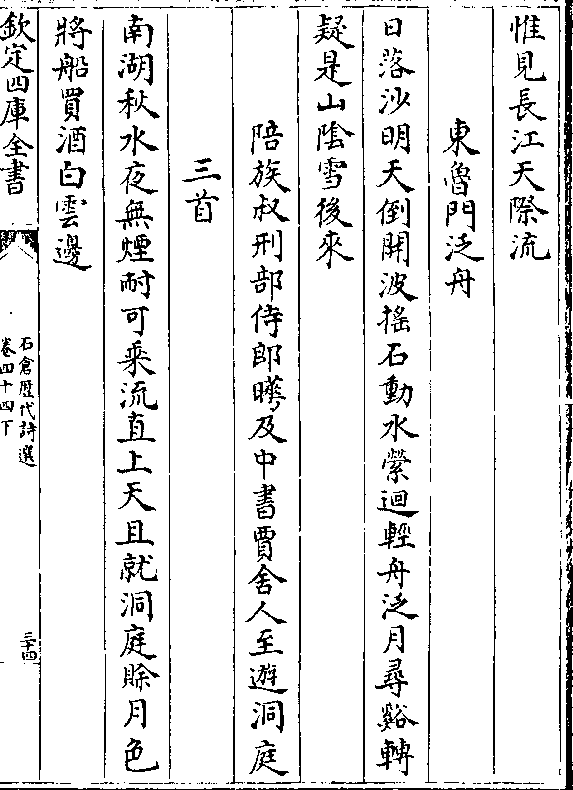 惟見長江天際流
東魯門泛舟
日落沙明天倒開波搖石動水縈迴輕舟泛月尋谿轉
疑是山陰雪後來
陪族叔刑部侍郎曄及中書賈舍人至遊洞庭
三首
南湖秋水夜無煙耐可乘流直上天且就洞庭賒月色
將船買酒白雲邊
欽定四庫全書
石倉歴代詩選
卷四十四下
三十四